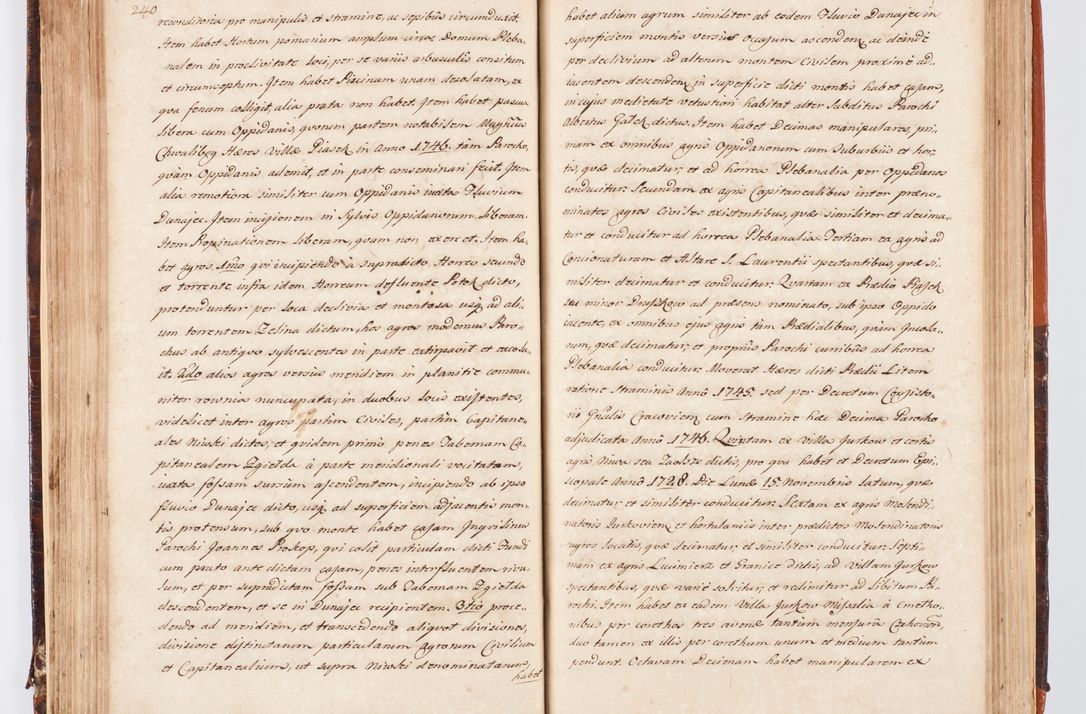 240
reconditoria pro manipulis et stramine, ac sepibus circumduxit.
Item habet Hortum pomarium amplum circa Domum Pleba-
nalem in proclivitate loci, per se variis arbusculis consitum
et circumseptum. Item habet Piscinam unam desolatam, ex
qva fenum colligit, alia prata non habet. Item habet pascua
libera cum Oppidanis, qvorum partem notabilem Magnificus
Chwalibog Hæres Villæ Piasek in Anno 1746. tàm Parocho,
qvàm Oppidanis ademit, et in parte conseminari fecit. Item
alia remotiora similiter cum Oppidanis iuxta Fluvium
Dunajec. Item incisionem in Sylvis Oppidanorum liberam.
Item Propinationem liberam, qvam non exercet. Item ha-
bet agros. Imo qvi incipiendo à supradicto Horreo secundo
et torrente infra idem Horreum defluente Potok dicto,
protenduntur per loca declivia et montosa usq; ad ali-
um torrentem Zelina dictum, hos agros modernus Paro-
chus ab antiqvo sylvescentes in parte extirpavit et excolu-
it. 2do alios agros versus meridiem in planitie commu-
niter rownia nuncupata, in duobus locis existentes,
videlicet inter agros partim Civiles, partim Capitane-
ales Niwski dictos, et qvidem primò penes Tabernam Ca-
pitanealem Zgielda à parte meridionali vocitatam,
iuxta fossam sursum ascendentem, incipiendo ab ipso
fluvio Dunajec dicto, usq; ad superficiem adjacentis mon-
tis protensum, sub qvo monte habet casam Inqvilinus
Parochi Joannes Prokop, qvi colit particulam dicti Fundi
cum prato ante dictam casam, penes interfluentem rivu-
lum, et per supradictam fossam sub Taberna Zgielda
descendentem, et se in Dunajec recipientem. 3tiò proce-
dendo ad meridiem, et transcedendo aliqvot divisiones,
divisione distinctarum particularum Agrorum Civilium
et Capitanealium, ut supra Niwski denominatarum,
habet
habet alium agrum similiter ab eodem Fluvio Dunajec in
superficiem montis versus Occasum ascendens, ac deinde
per declivium ad alterum montem Civilem proximè ad-
iacentem descendens, in superficie dicti montis habet casam,
in cujus medietate vetustiori habitat alter Subditus Parochi
Albertus Gałek dictus. Item habet Decimas manipulares, pri-
mam ex omnibus agris Oppidanorum cum Suburbiis et hor-
tis, qvæ decimatur, et ad horrea Plebanalia per Oppidanos
conducitur. Secundam ex agris Capitanealibus inter præno-
minatos agros Civiles existentibus, qvæ similiter et decima-
tur et conducitur ad horrea Plebanalia. Tertiam ex agris ad
Concionaturam et Altare S. Laurentii spectantibus, qvæ si-
militer decimatur et conducitur. Qvartam ex Prædio Piasek
seu minor Drużkow ad præsens nominato, sub ipso Oppido
iacente, ex omnibus ejus agris tàm Prædialibus, qvàm Incola-
rum, qvæ decimatur, et propriis Parochi curribus ad horrea
Plebanalia conducitur. Moverat Hæres dicti Prædii Litem
ratione Straminis Annô 1745. sed per Decretum Consisto-
rii Gnalis Cracovien; cum Stramine hæc Decima Parocho
adjudicata Annô 1746. Qvintam ex Villa Jurkow et certis
agris Niwa seu Zaolsze dictis, pro qva habet et Decretum Epi-
scopale Annô 1728. Die Lunæ 15. Novembris latum, qvæ
decimatur et similiter conducitur. Sextam ex agris Molendi-
natoris Jurkovien; et hortulaniis inter prædictos Molendinatoris
agros locatis, qvæ decimatur, et similiter conducitur. Septi-
mam ex agris Lusinierz et Granice dictis, ad Villam Jurkow
spectantibus, qvæ variè solvitur, et redimitur ad libitum Pa-
rochi. Item habet ex eadem Villa Jurkow Missalia à Cmetho-
nibus per corethos tres avenæ tantùm mensuræ Czchovien;
duo tamen ex illis per corethum unum et medium tantùm
pendunt. Octavam Decimam habet manipularem ex